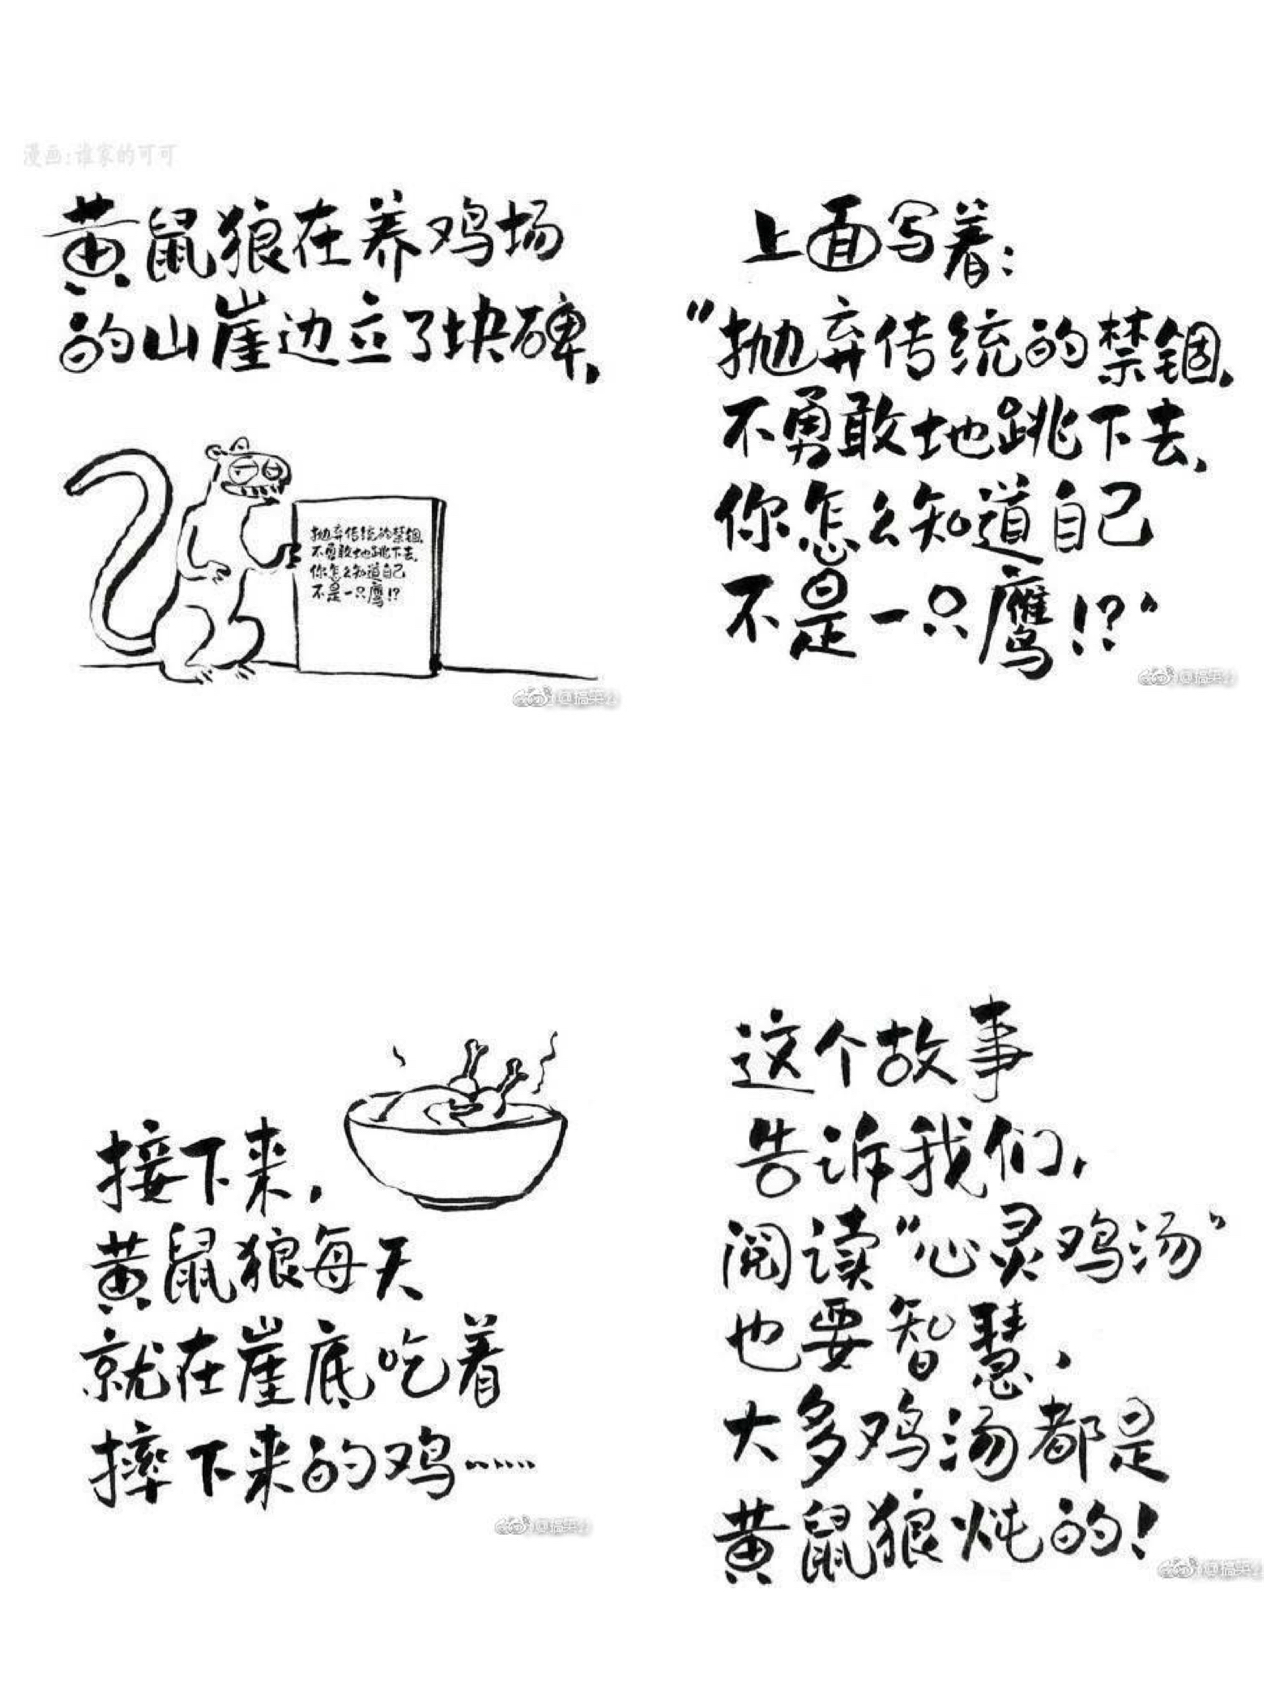 漫画:谁家的可可
黄鼠狼在养鸡场
的山崖边立了块碑,
抛弃传统的禁锢,
不勇敢地跳下去,
你怎么知道自己
不是一只鹰!?
上面写着:
"抛弃传统的禁锢,
不勇敢地跳下去,
你怎么知道自己
不是一只鹰!?"
接下来,
黄鼠狼每天
就在崖底吃着
摔下来的鸡……
这个故事
告诉我们,
阅读"心灵鸡汤"
也要智慧,
大多鸡汤都是
黄鼠狼炖的!